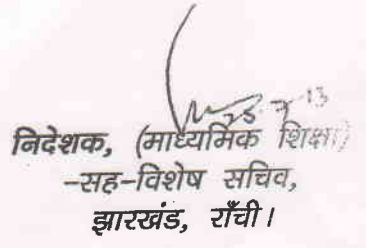 निदेशक, (माध्यमिक शिक्षा)
-सह-विशेष सचिव,
झारखंड, राँची।